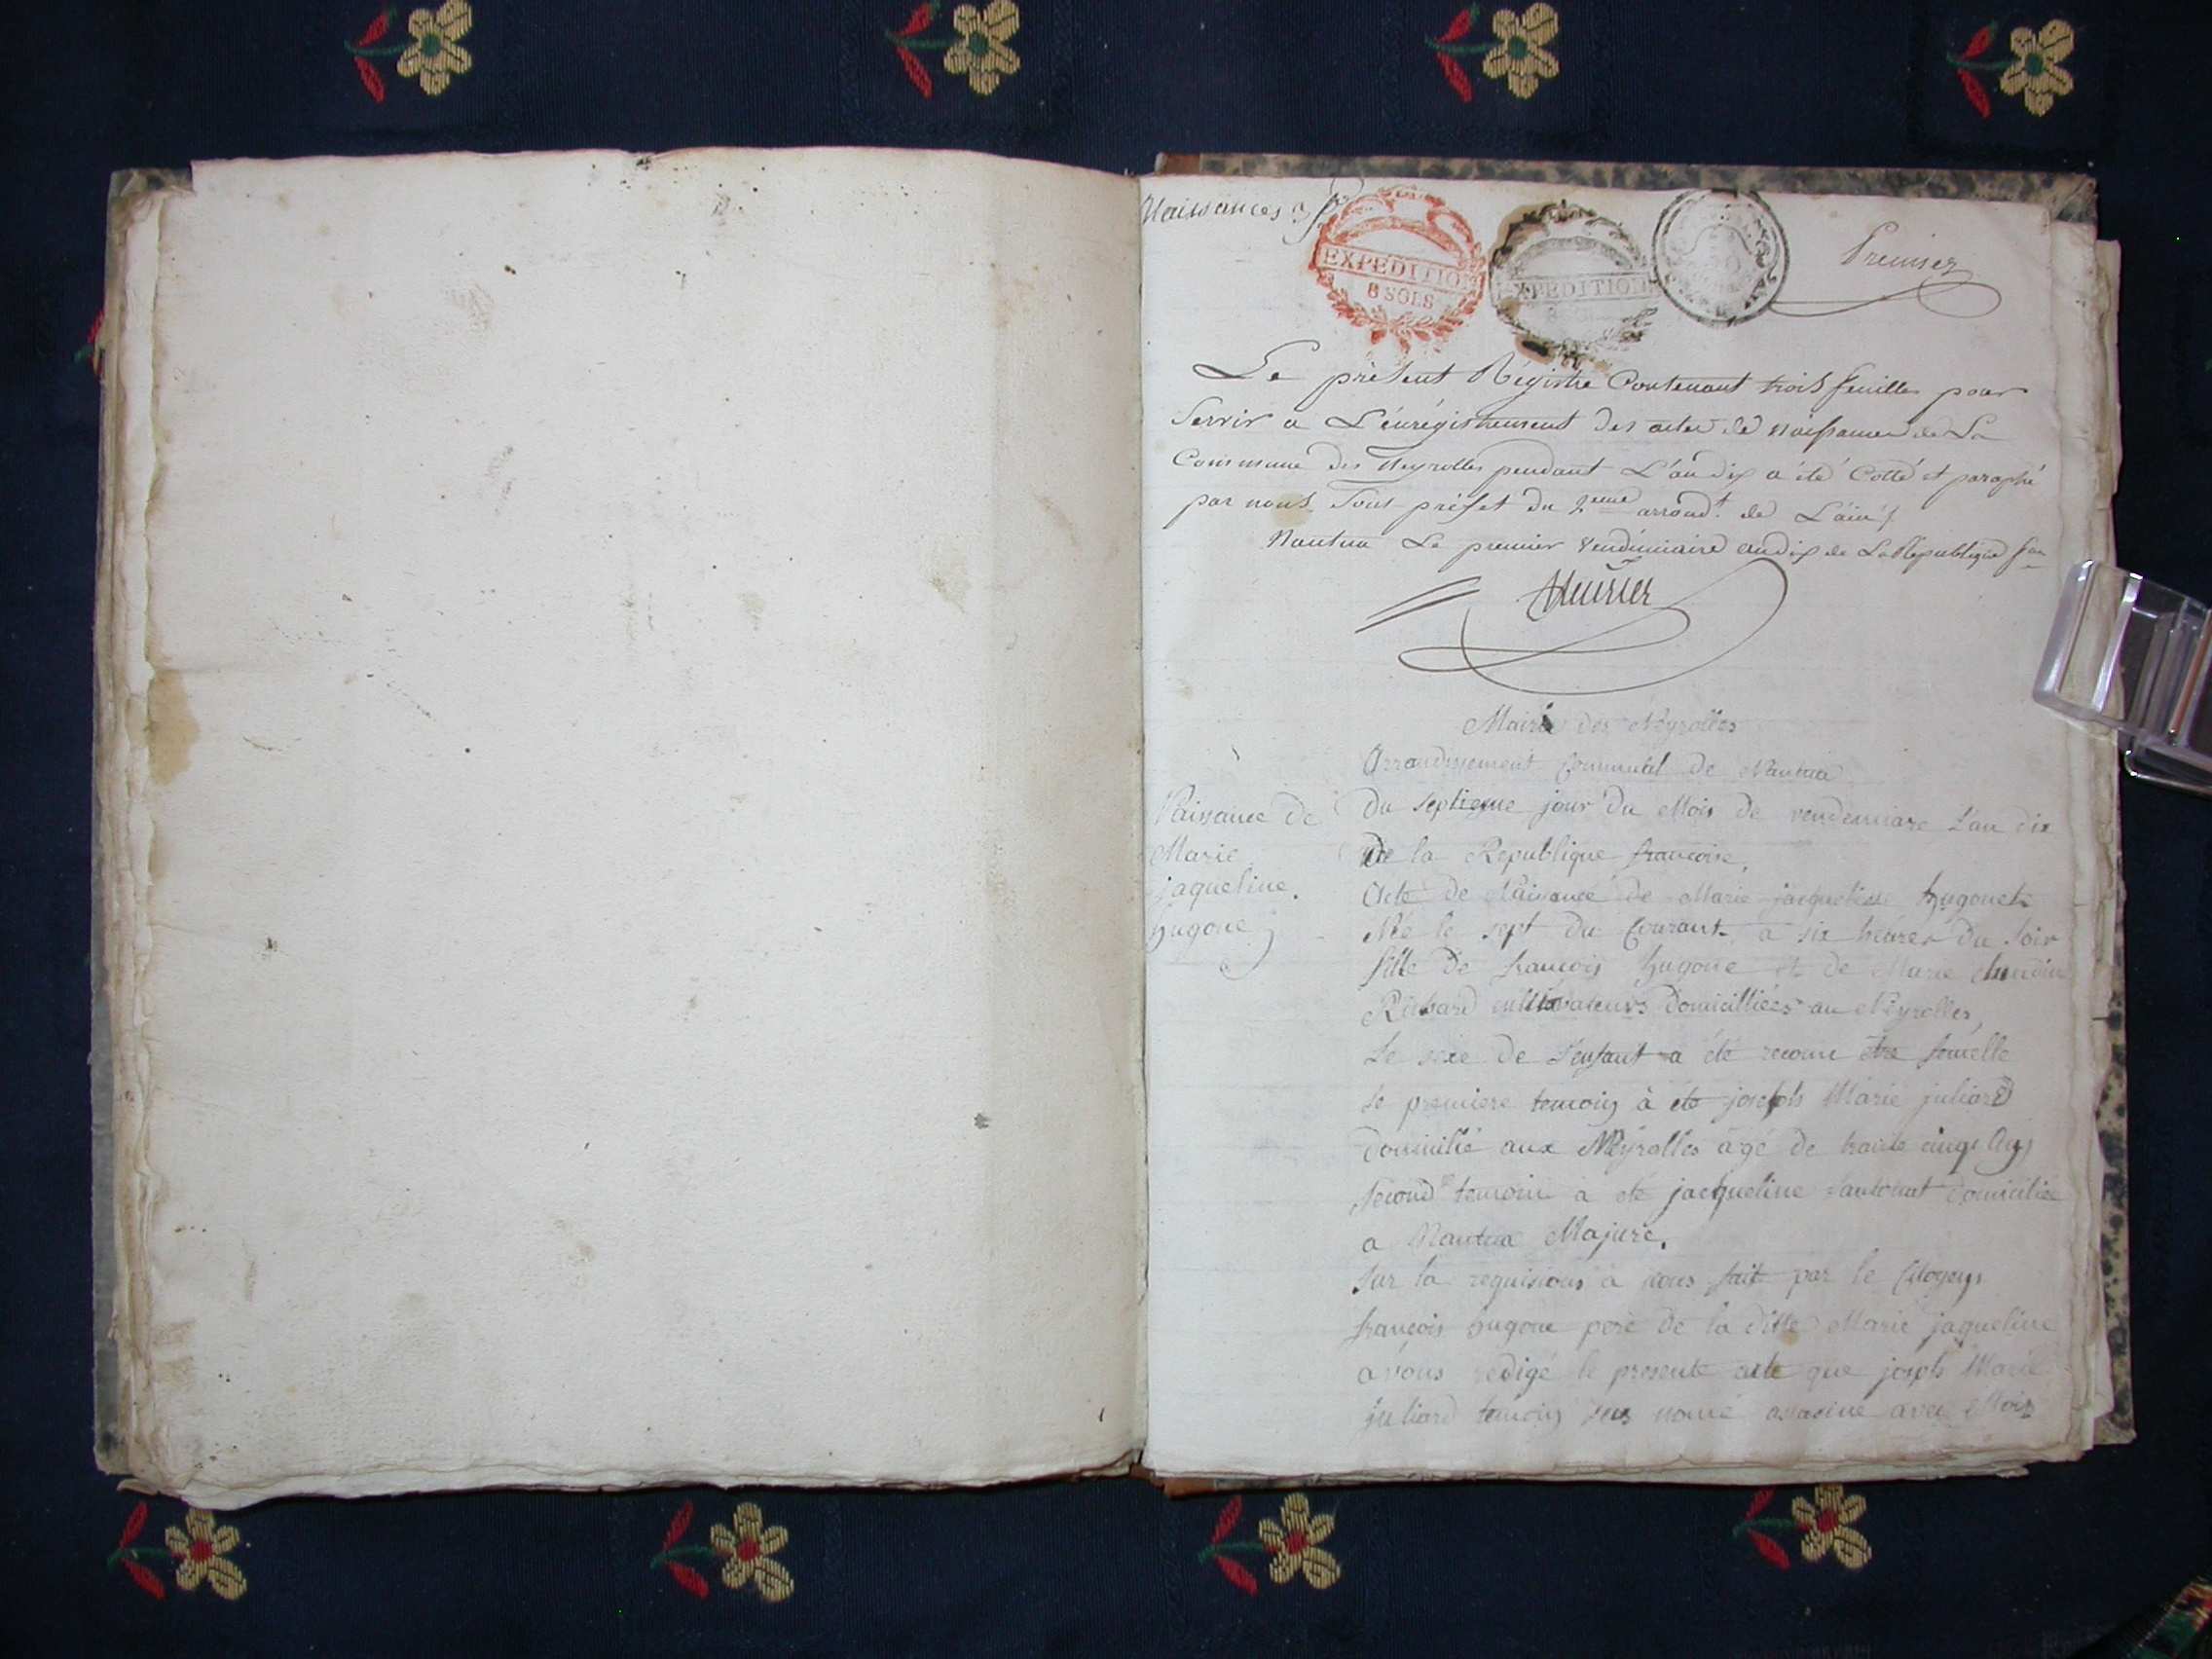 Naissances 3 f
EXPEDITION
8 SOLS
EXPEDITION
Premier
Le présent Régistre Contenant trois feuilles pour
Servir a L'énrégistrement des actes de naissances de La
Commune des Neyrolles pendant L'an dix a été Cotté et paraphé
par nous Sous préfet du 2eme arrondt. de L'ain
Nantua Le premier Vendémiaire an dix de La République fra
Mairie des Neyrolles
Arrondissement Communal de Nantua
Naissance de
Marie
jaqueline
hugone
Du septieme jour du Mois de vendemiare L'an dix
De la Republique francoise,
Acte de Naissance de Marie jacqueline hugonet
Née le sept du Courant a six heures du soir
fille de francois hugone et de Marie
Richard cultivateurs Domicilliées au Neyrolles,
Le sexe de L'enfant a été reconu être femelle
Le premiere temoin à été joseph Marie juliard
Domicilié aux Neyrolles agé de trante cinqs Ans
second temoin a eté jacqueline domiciliée
a Nantua Majure.
sur la requisions a nous fait par le Citoyens
francois hugone pere de la ditte Marie jaqueline
avons redigé le presente acte que joseph Marie
juliard temoins sus nomé avec Moiz